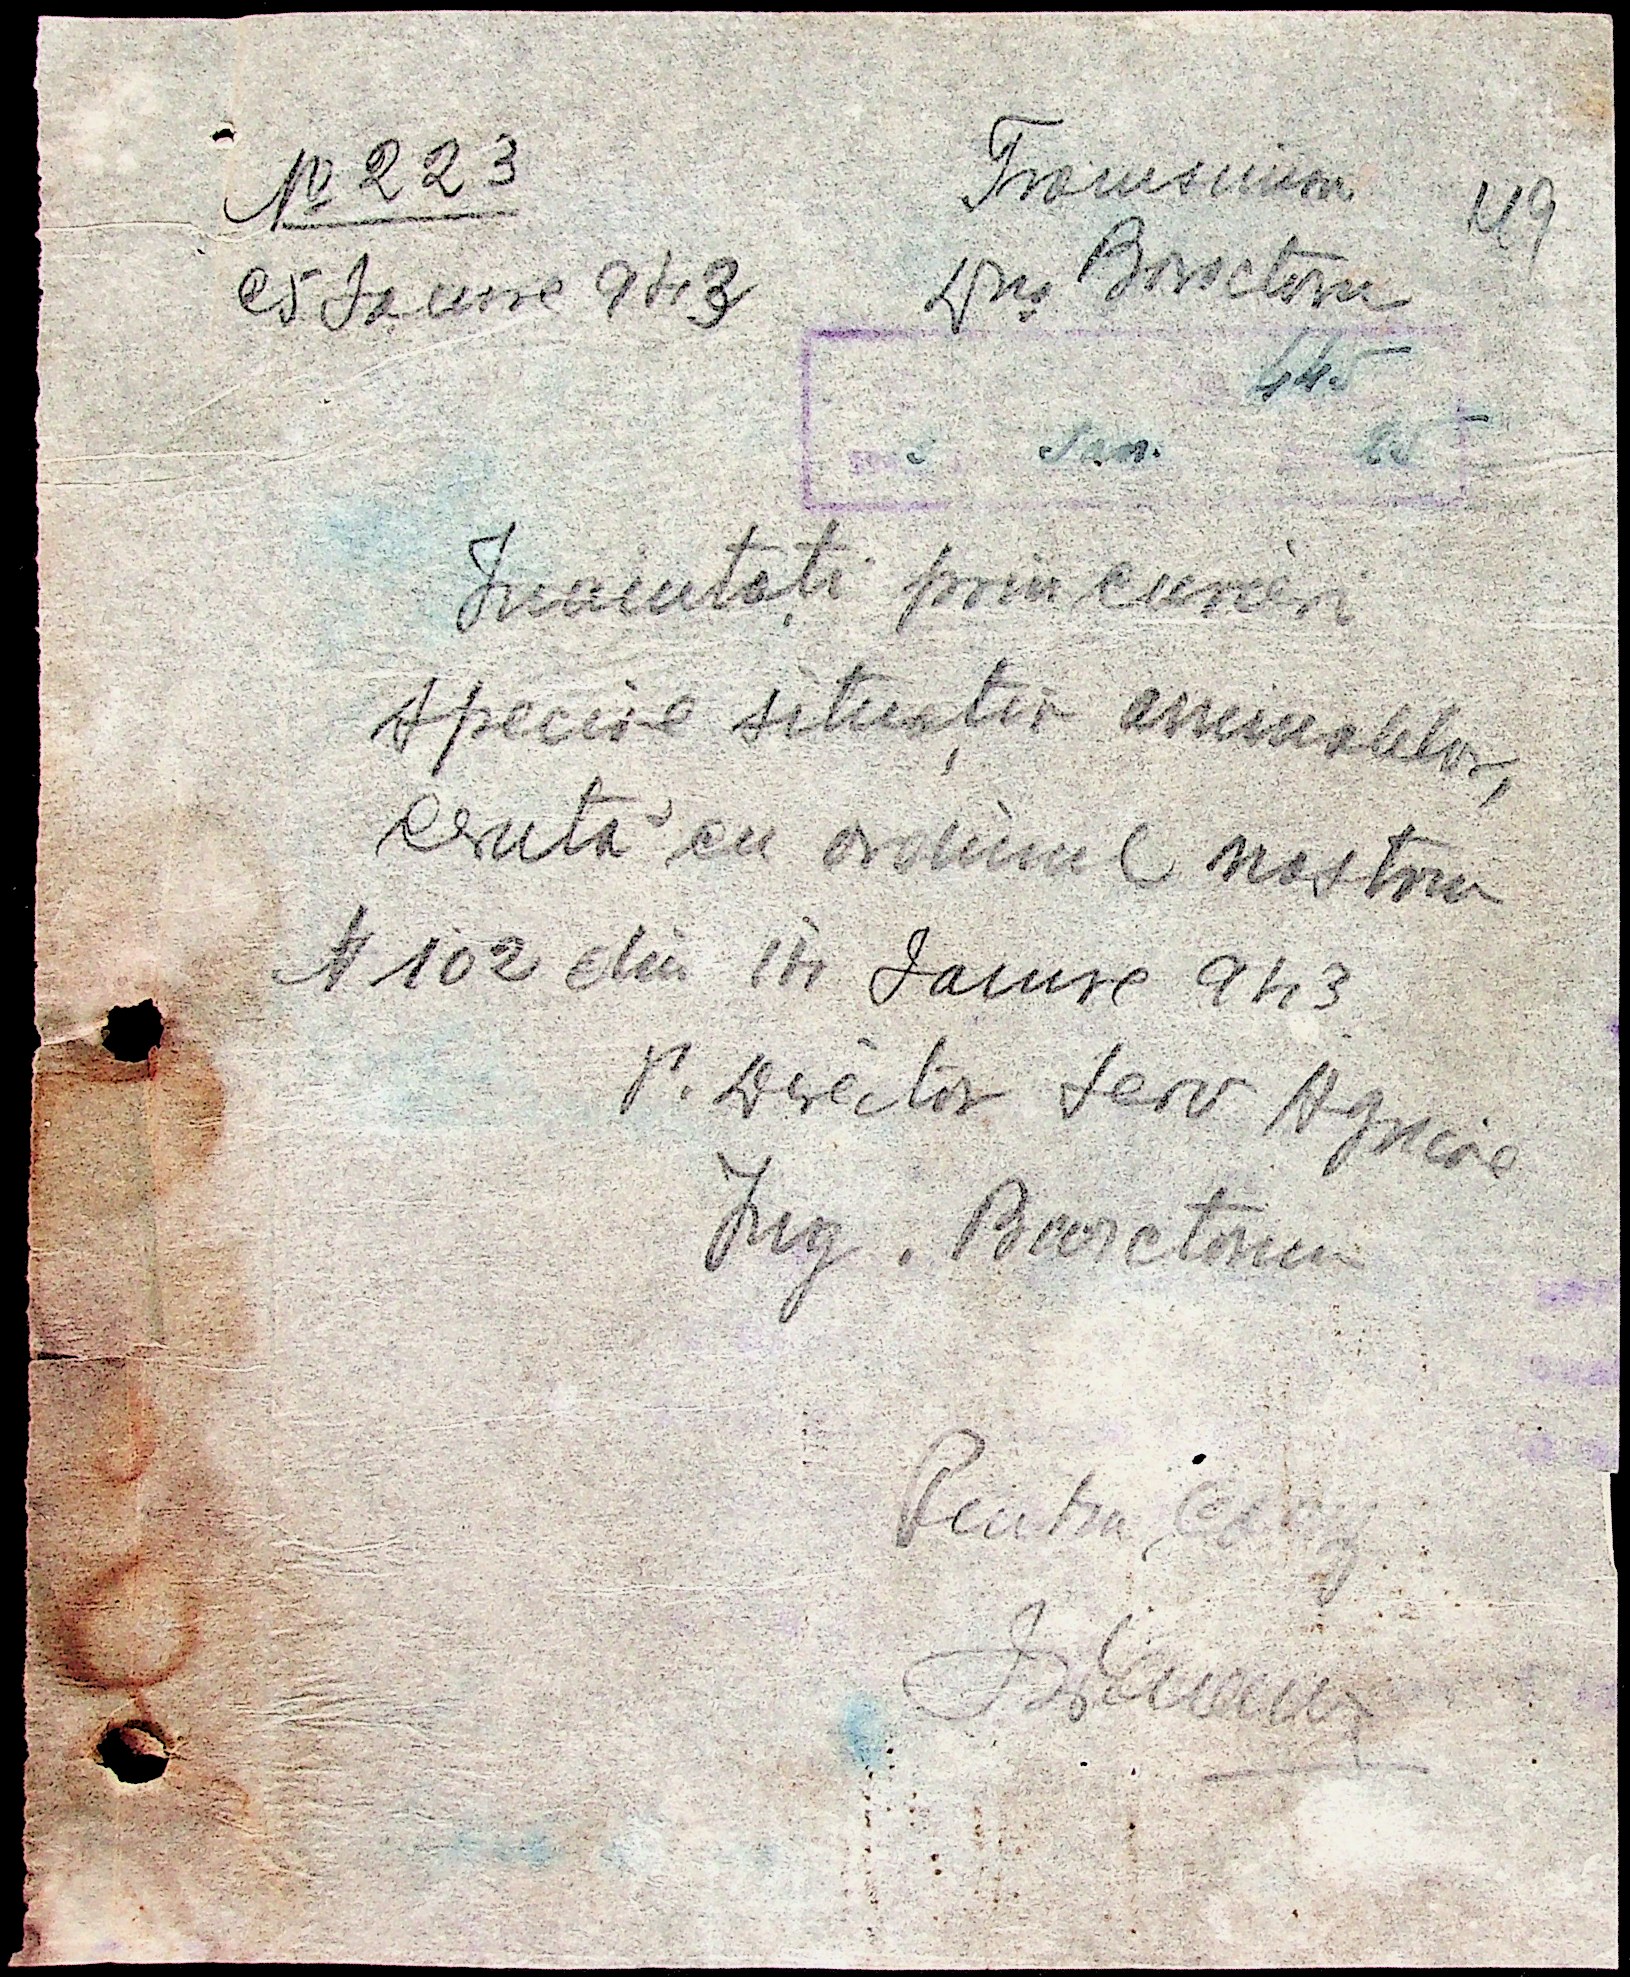 № 223
25 Ianuarie 943
Transmisiune
49
Dna Boractoru
445
Ian. 25
Inaintați prin curieri
speciale situația animalelor,
cerută cu ordinul nostru
N 102 din 14 Ianuarie 943
p. Director Serv Agricole
Ing. Boractoru
Pentru